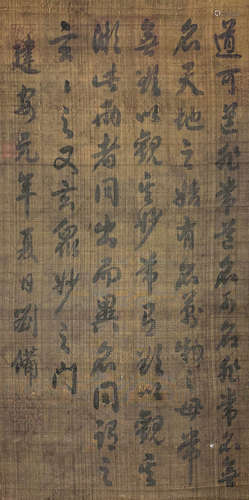 道可道非常道名可名非常名無
名天地之始有名萬物之母常
無欲以觀其妙常有欲以觀其
徼此兩者同出而異名同謂之
玄〻之又玄衆妙之門
建安元年夏日劉備